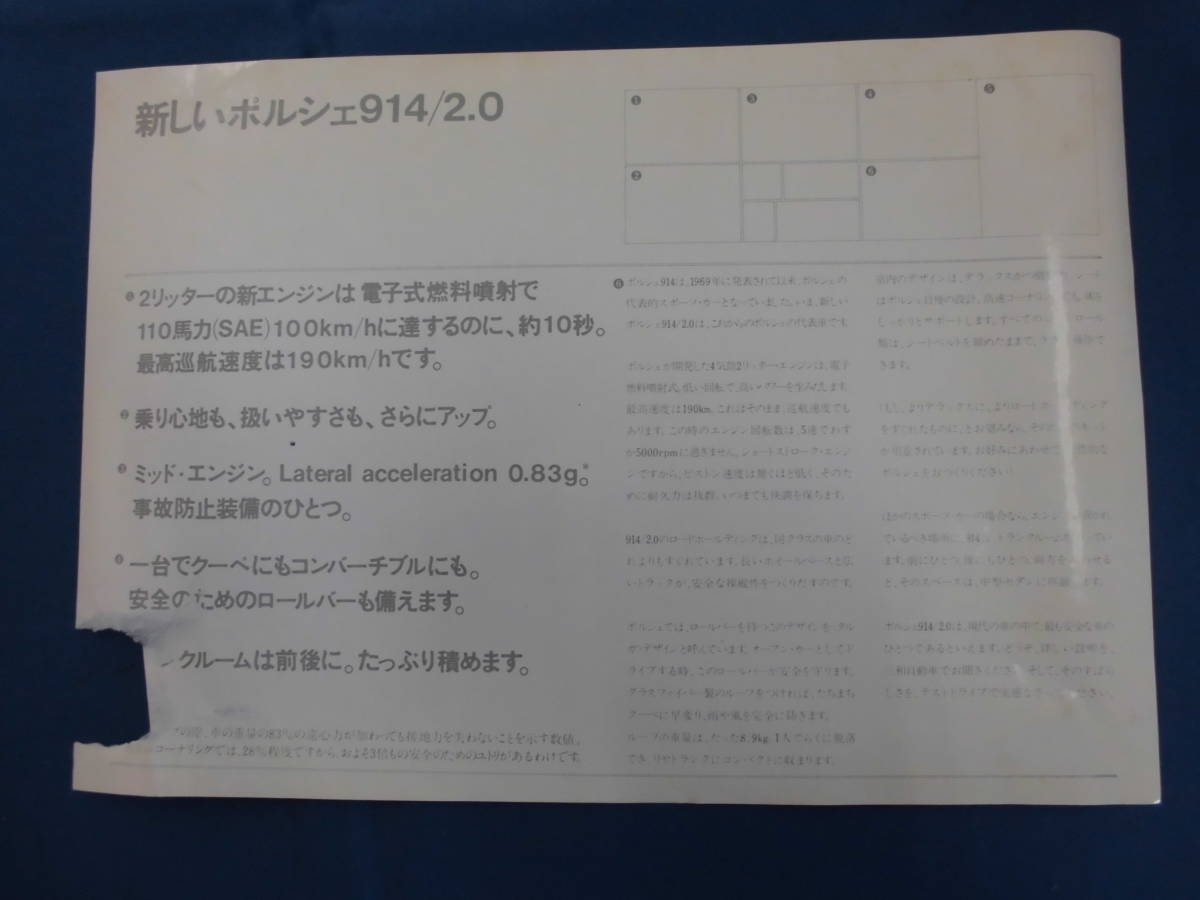 新しいポルシェ914/2.0
❶ ❸ ❹ ❺
❷ ❻
❶ 2リッターの新エンジンは電子式燃料噴射で
110馬力(SAE)100km/hに達するのに、約10秒。
最高巡航速度は190km/hです。
❷ 乗り心地も、扱いやすさも、さらにアップ。
❸ ミッド・エンジン。Lateral acceleration 0.83g*。
事故防止装備のひとつ。
❹ 一台でクーペにもコンバーチブルにも。
安全のためのロールバーも備えます。
クルームは前後に。たっぷり積めます。
の際、車の重量の83%の遠心力が加わっても接地力を失わないことを示す数値。
コーナリングでは、28%程度ですから、およそ3倍もの安全のためのユトリがあるわけです。
❻ ポルシェ914は、1969年に発表されて以来、ポルシェの
代表的スポーツ・カーとなっていました。いま、新しい
ポルシェ914/2.0は、これからのポルシェの代表車です。
ポルシェが開発した4気筒2リッター・エンジンは、電子
燃料噴射式。低い回転で、高いパワーを生みだます。
最高速度は190km。これはそのまま、巡航速度でも
あります。この時のエンジン回転数は、5速でわず
か5000rpmに過ぎません。ショートストローク・エンジ
ンですから、ピストン速度は驚くほど低く、そのた
めに耐久力は抜群。いつまでも快調を保ちます。
914/2.0のロードホールディングは、同クラスの車のど
れよりもすぐれています。長いホイールベースと広
いトラックが、安全な操縦性をつくりだすのです。
ポルシェでは、ロールバーを持つこのデザインをタル
ガ・デザインと呼んでいます。オープン・カーとしてド
ライブする時、このロールバーが安全を守ります。
グラスファイバー製のルーフをつければ、たちまち
クーペに早変り。雨や風を完全に防ぎます。
ルーフの重量は、たった8.9kg。1人でらくに脱落
でき、リヤトランクにコンパクトに収まります。
室内のデザインは、デラックスかつ シート
はポルシェ自慢の設計。高速コーナリング でも、体を
しっかりとサポートします。すべての ロール
類は、シートベルトを締めたままで、ラク 操作で
きます。
もし、よりデラックスに、よりロード ディング
をすぐれたものに、とお望みなら、その キット
が用意されています。お好みにあわせて
ポルシェをおつくりください。
ほかのスポーツ・カーの場合なら、エンジン 置かれ
ているべき場所に、 トランクルーム
す。前にひとつ、後にもひとつ。両方を せる
と、そのスペースは、中型セダンに匹敵 ます。
ポルシェ914/2.0は、現代の車の中で、最も安全な車の
ひとつであるといえます。どうぞ、詳しい説明を、
三和自動車でお聞きください。そして、そのすばら
しさを、テストドライブで実感な ください。